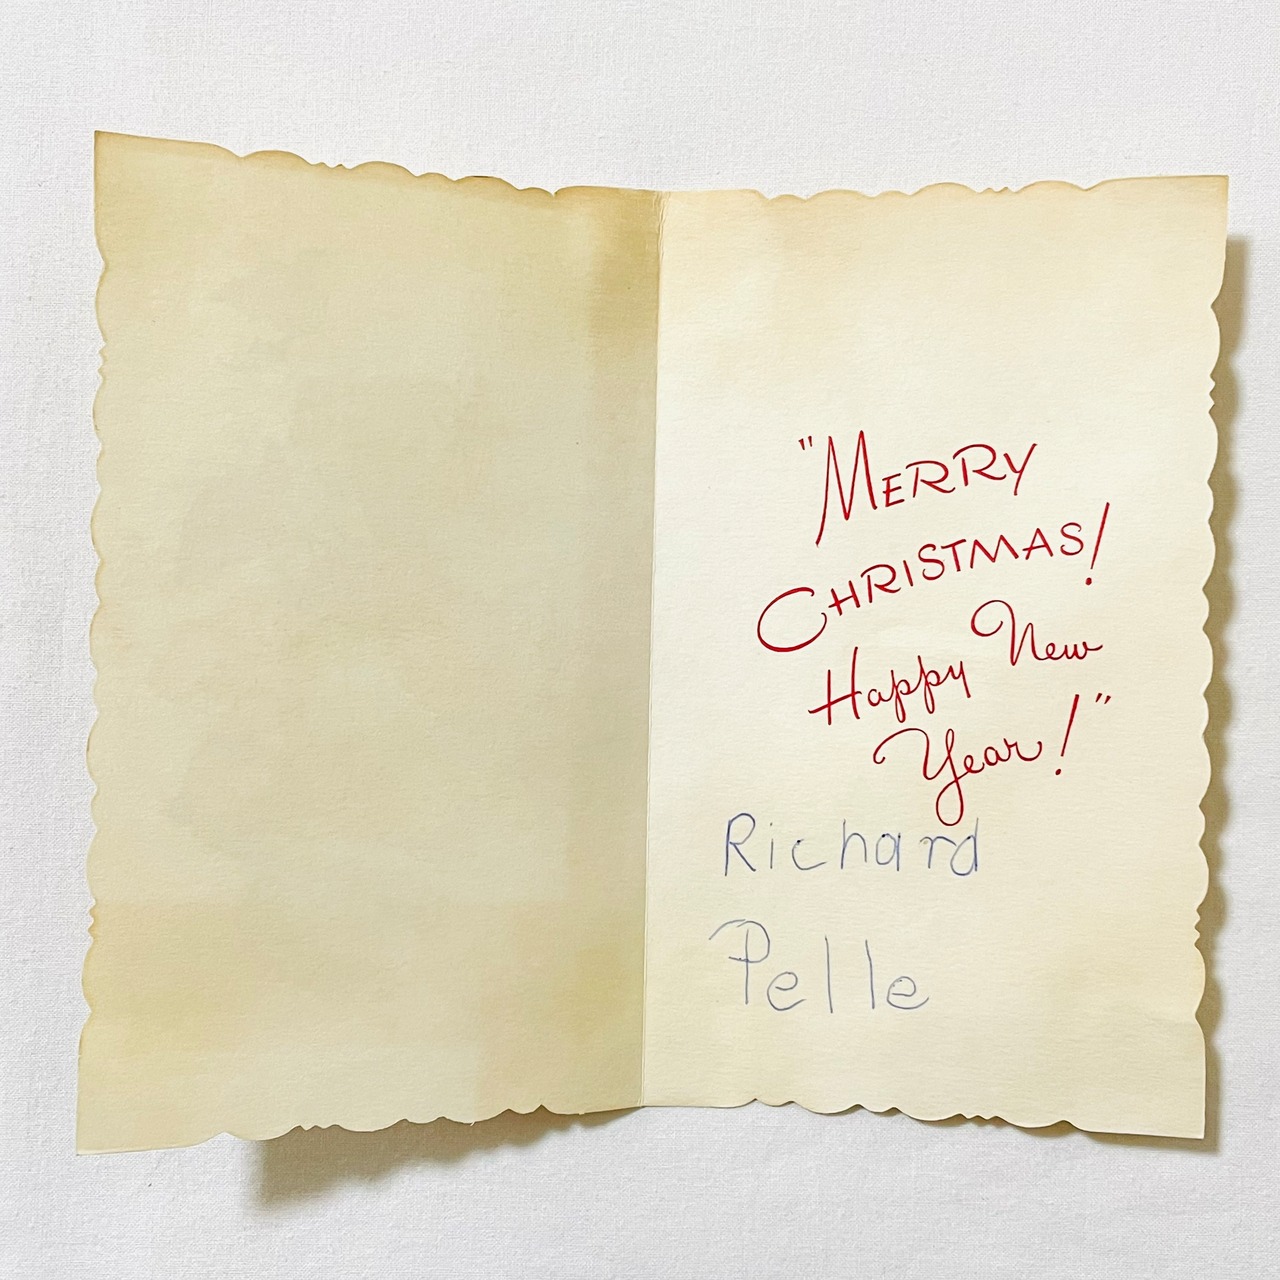 "MERRY
CHRISTMAS!
Happy New
Year!"
Richard
Pelle